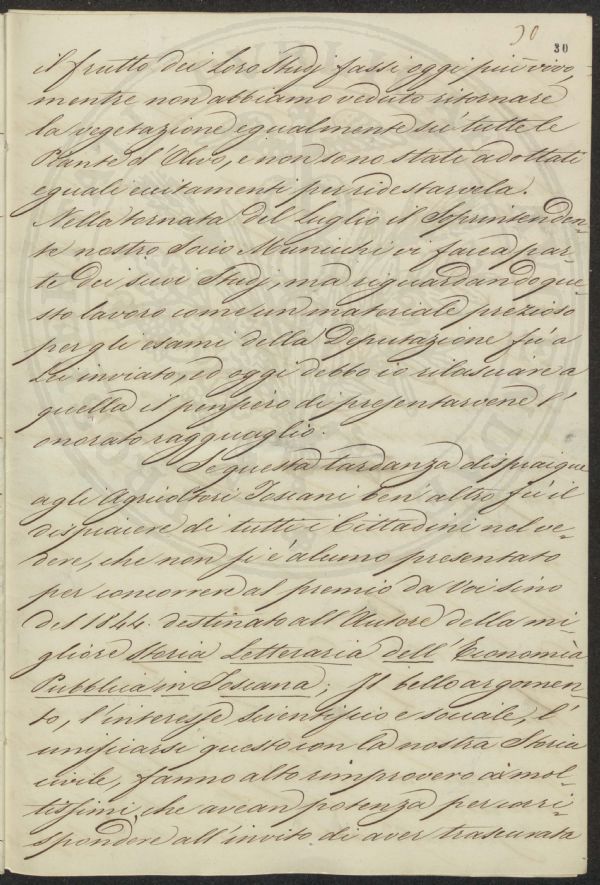 30
30
il frutto dei Loro Studj fassi oggi più vivo,
mentre non abbiamo veduto ritornare
la vegetazione egualmente sù tutte le
Piante d'Olivo, e non sono stati adottati
eguali eccitamenti per ridestarvela.
Nella tornata del Luglio il Soprintenden-
te nostro Socio Municchi vi facea par-
te dei suoi Studj, ma riguardando que-
sto lavoro come un materiale prezioso
per gli esami della Deputazione fù a
Lei inviato, ed oggi debbo io rilasciare a
quella il pensiero di presentarvene l'
onorato ragguaglio.
Se questa tardanza dispiacque
agli Agricoltori Toscani ben altro fù il
dispiacere di tutti i Cittadini nel ve-
dere, che non si è alcuno presentato
per concorrere al premio da Voi sino
del 1844. destinato all'Autore della mi-
gliore Storia Letteraria dell'Economia
Pubblica in Toscana; Il bello argomen-
to, l'interesse Scientifico e sociale, l'
unificarsi questo con la nostra Storia
civile, fanno alto rimprovero ai mol-
tissimi, che avean potenza per corri-
spondere all'invito di aver trascurata